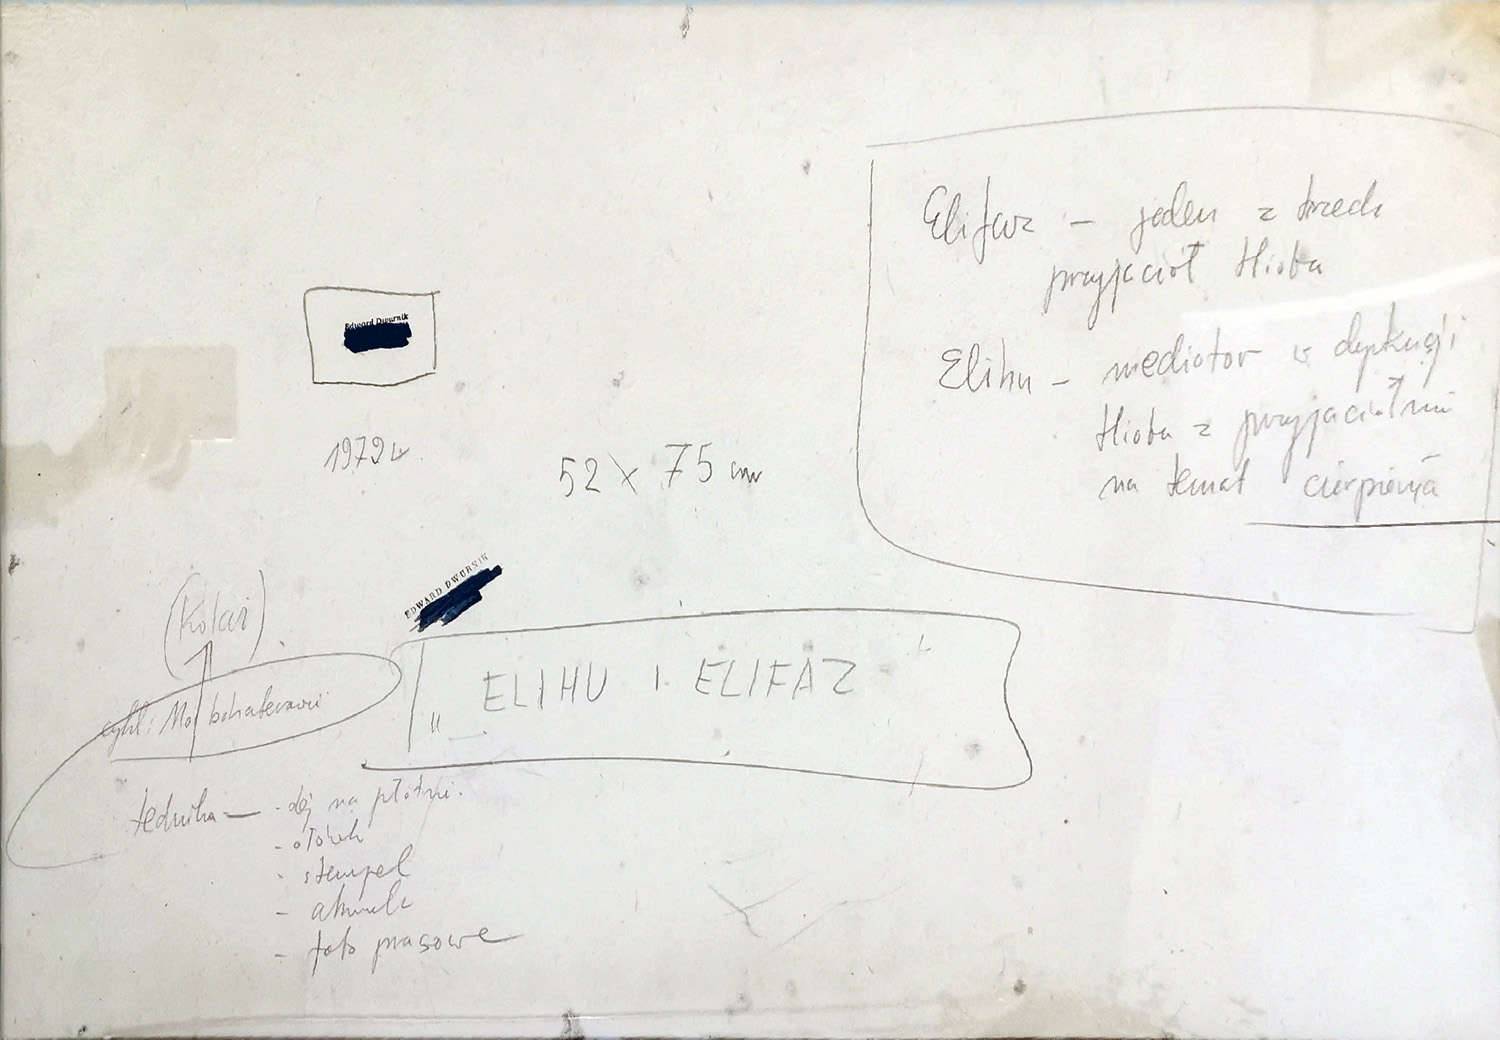 Elifaz – jeden z trzech
przyjaciół Hioba
Elihu – mediator w dyskusji
Hioba z przyjaciółmi
na temat cierpienia
Edward Dwurnik
1972 r.
52 x 75 cm
EDWARD DWURNIK
(Kolaż)
„ ELIHU I ELIFAZ
cykl: Moi bohaterowie
technika – - olej na płótnie.
- ołówek
- stempel
- akwarela
- foto prasowe